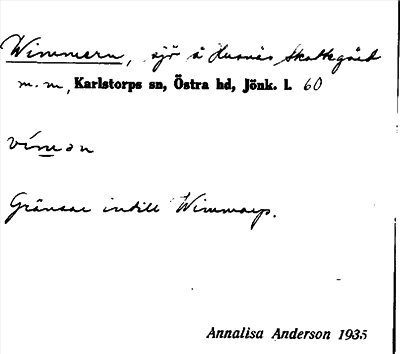 Wimmern, sjö å Husnäs Skattegård
m. m, Karlstorps sn, Östra hd, Jönk. l. 60
vímən
Gränsar intill Wimmarp.
Annalisa Anderson 1935